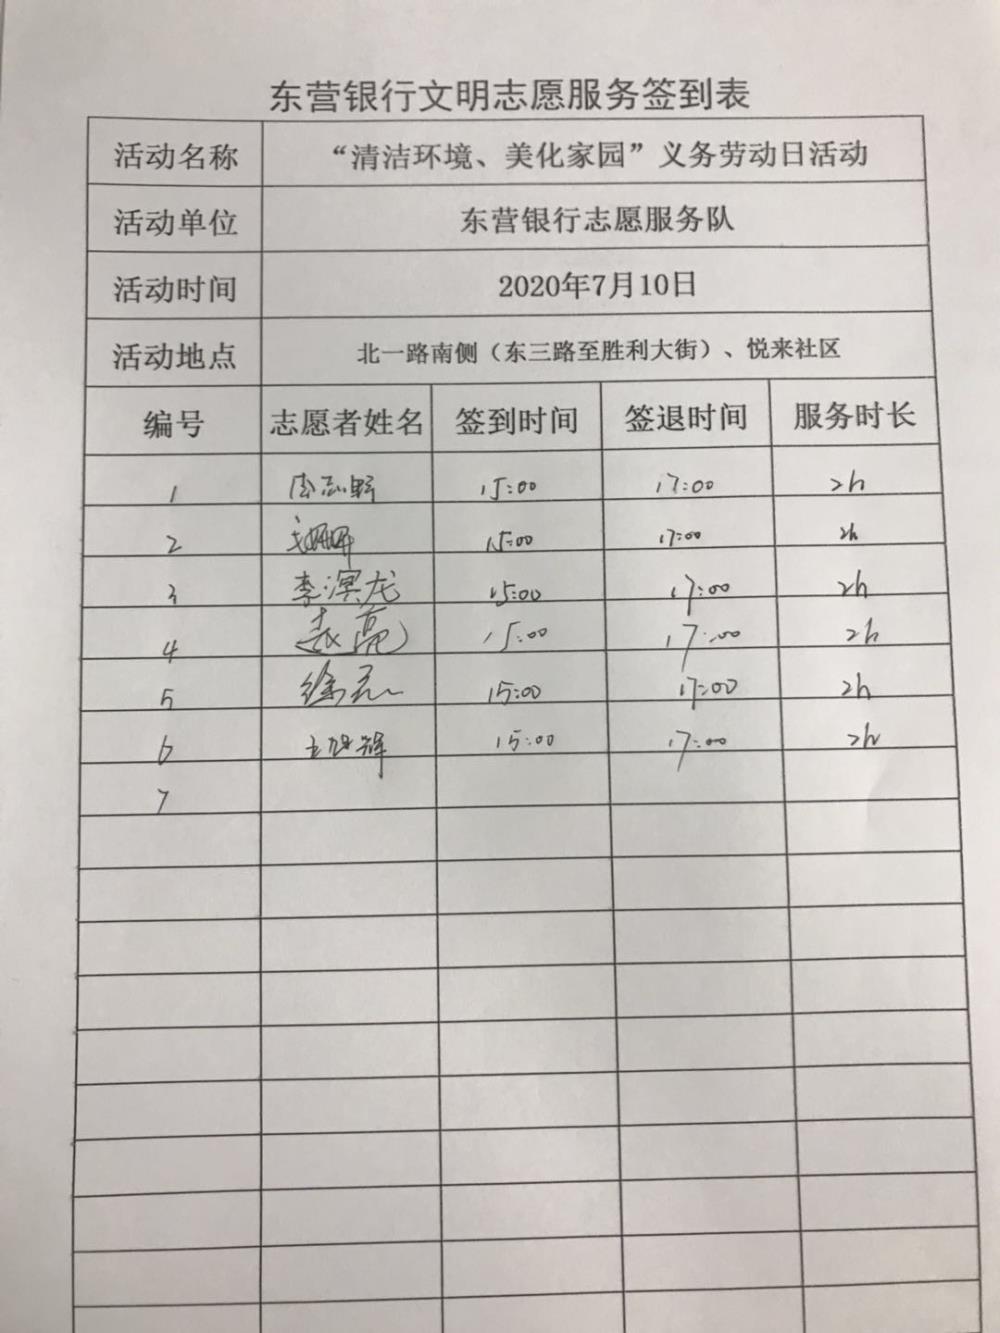 东营银行文明志愿服务签到表
活动名称 “清洁环境、美化家园”义务劳动日活动
活动单位 东营银行志愿服务队
活动时间 2020年7月10日
活动地点 北一路南侧（东三路至胜利大街）、悦来社区
编号 志愿者姓名 签到时间 签退时间 服务时长
1 15:00 17:00 2h
2 15:00 17:00 2h
3 李溟龙 15:00 17:00 2h
4 袁亮 15:00 17:00 2h
5 15:00 17:00 2h
6 15:00 17:00 2h
7